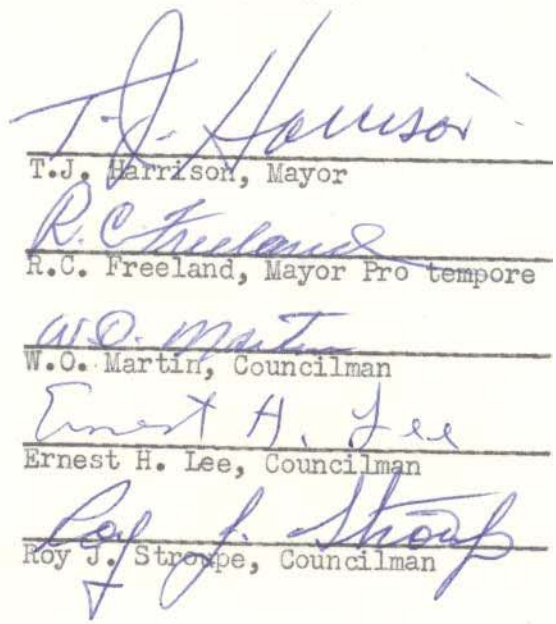 T. J. Harrison
T.J. Harrison, Mayor
R. C. Freeland
R.C. Freeland, Mayor Pro tempore
W. O. Martin
W.O. Martin, Councilman
Ernest H. Lee
Ernest H. Lee, Councilman
Roy J. Stroup
Roy J. Stroupe, Councilman